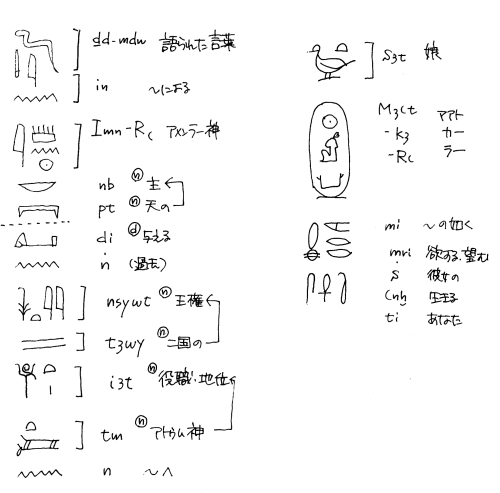 dd-mdw 語られた言葉
in ～による
Imn-Rc アメン・ラー神
nb ⓝ 主
pt ⓝ 天の
di ⓓ 与える
n (過去)
nsywt ⓝ 王権
t3wy ⓝ 二国の
i3t ⓝ 役職・地位
tm ⓝ アトゥム神
n ～へ
S3t 娘
M3ct マアト
-K3 カー
-Rc ラー
mi ～の如く
mri 欲する、望む
s 彼女の
cnh 生きる
ti あなた